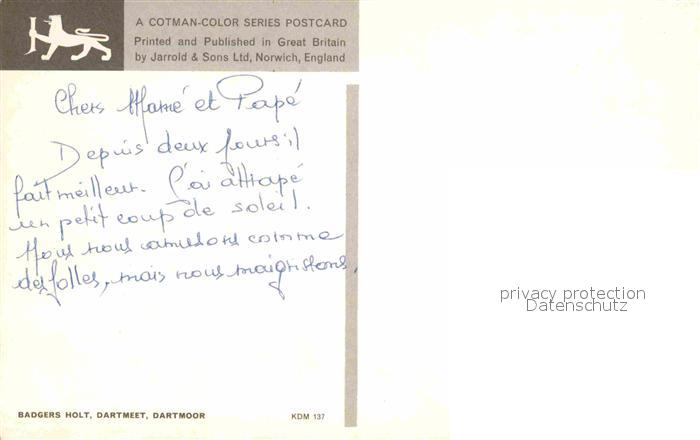 A COTMAN-COLOR SERIES POSTCARD
Printed and Published in Great Britain
by Jarrold & Sons Ltd, Norwich, England
Chers Mamé et Papé
Depuis deux jours il
fait meilleur. J'ai attrapé
un petit coup de soleil.
Nous nous amusons comme
des folles, mais nous maigrissons.
BADGERS HOLT, DARTMEET, DARTMOOR
KDM 137
privacy protection
Datenschutz